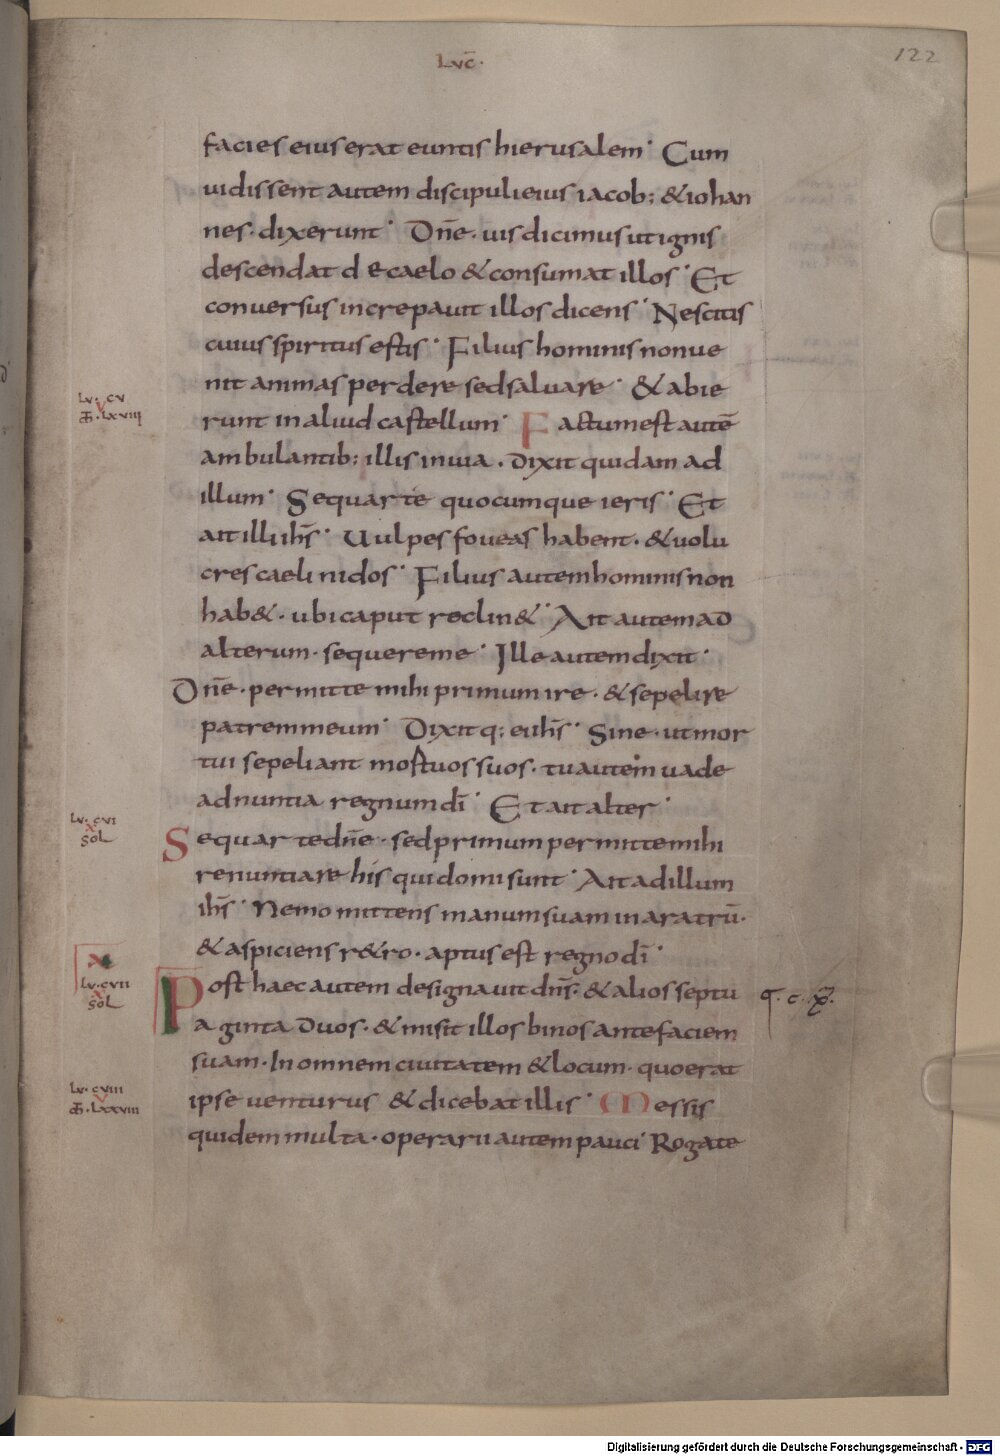 LVC̄·
122
facies eius erat euntis hierusalem· Cum
uidissent autem discipuli eius iacob; & iohan
nes· dixerunt· Dn̄e· uis dicimus ut ignis
descendat de caelo & consumat illos· Et
conuersus increpauit illos dicens· Nescitis
cuius spiritus estis· Filius hominis non ue
nit animas perdere sed saluare· & abie
runt in aliud castellum· Factum est autē
ambulantib; illis in uia· dixit quidam ad
illum· Sequar te quocumque ieris· Et
ait illi ihs̄· Uulpes foueas habent· & uolu
cres caeli nidos· Filius autem hominis non
hab&· ubi caput reclin&· Ait autem ad
alterum· sequere me· Ille autem dixit·
Dn̄e· permitte mihi primum ire· & sepelire
patrem meum· Dixitq; ei ihs̄· Sine· ut mor
tui sepeliant mortuos suos· tu autem uade
adnuntia regnum dī· Et ait alter·
Sequar te dn̄e· sed primum permitte mihi
renuntiare his qui domi sunt· Ait ad illum
ihs̄· Nemo mittens manum suam in aratrū·
& aspiciens r&ro· aptus est regno dī·
Post haec autem designauit dn̄s· & alios septu
aginta duos· & misit illos binos ante faciem
suam· In omnem ciuitatem & locum· quo erat
ipse venturus & dicebat illis· Messis
quidem multa· operarii autem pauci Rogate
LV· CV
V
LXVIII
LV· CVI
X
SOL
LV· CVII
X
SOL
LV· CVIII
V
LXXVIII
Digitalisierung gefördert durch die Deutsche Forschungsgemeinschaft - DFG